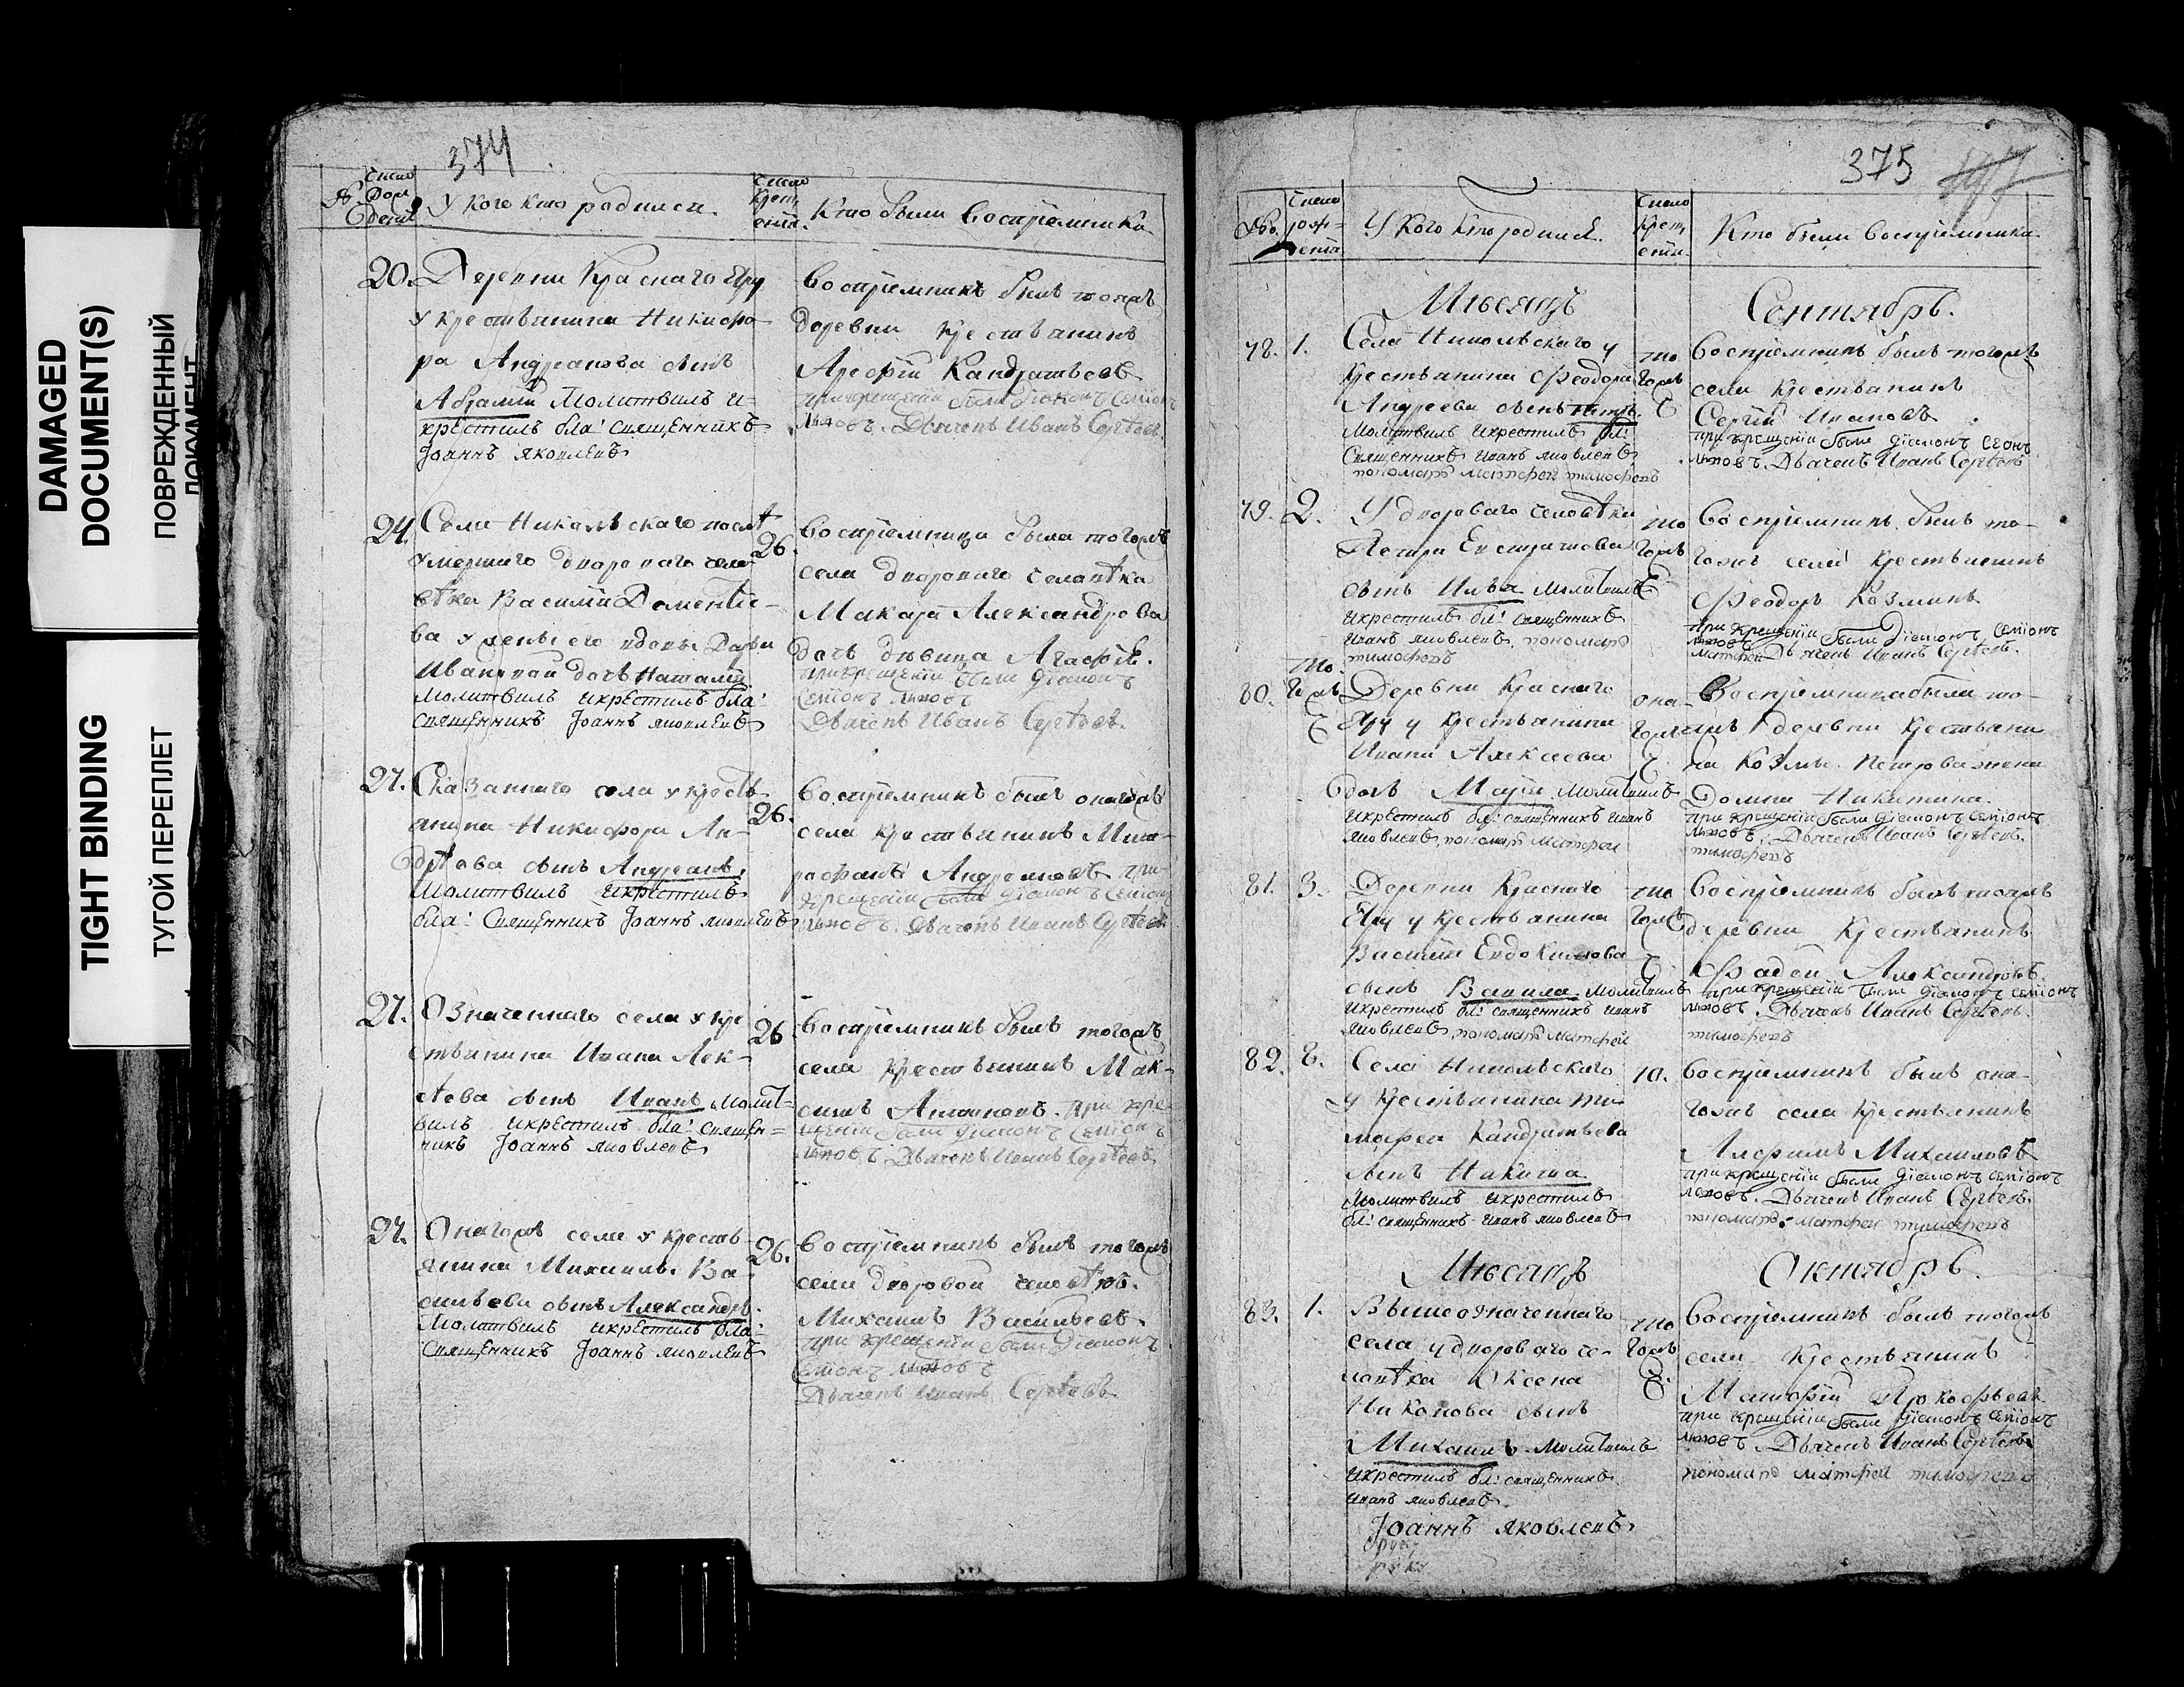 DAMAGED
DOCUMENT(S)
ПОВРЕЖДЕННЫЙ
ДОКУМЕНТ
TIGHT BINDING
ТУГОЙ ПЕРЕПЛЕТ
374
У кого кто родился.
Кто были воспрiемники
20. Деревни Краснаго Яру
у крестьянина Никифо-
ра Андреянова сынъ
Абрамiй молитвилъ и-
крестилъ бла: священникъ
Iоаннъ яковлевъ
воспрiемникъ былъ тояжъ
деревни крестьянинъ
Арефiй Кандратьевъ
при крещенiи были дiаконъ Семiонъ
Дьячекъ Иванъ Сергѣевъ
24. Села Никольскаго послѣ
умершаго двороваго чело-
вѣка Василiя Дементiе-
ва у жены его вдовы Дарьи
Ивановой дочь Наталiя
молитвилъ икрестилъ бла:
священникъ Iоаннъ яковлевъ
26.
воспрiемница была тогожъ
села двороваго человѣка
Макара Александрова
дочь дѣвица Агафiя.
при крещенiи были дiаконъ
Семiонъ
Дьячекъ Иванъ Сергѣевъ.
27. Сказаннаго села у кресть-
янина Никифора Ан-
дрѣева сынъ Андреянъ,
молитвилъ икрестилъ
бла: Священникъ Iоаннъ яковлевъ
26.
воспрiемникъ былъ оногожъ
села крестьянинъ Мит-
рофанъ Андреяновъ при-
крещенiи были дiаконъ Семiонъ
Дьячекъ Иванъ Сергѣевъ
27. Означеннаго села у кре
стьянина Ивана Алек-
сѣева сынъ Иванъ молит-
вилъ икрестилъ бла: священ=
никъ Iоаннъ яковлевъ
26
воспрiемникъ былъ тогожъ
села крестьянинъ Мак-
симъ При кре-
щенiи были дiаконъ Семiонъ
Дьячекъ Иванъ Сергѣевъ
27. Оногожъ села у кресть
янина Михаила Ва-
сильева сынъ Александръ.
молитвилъ икрестилъ бла:
священникъ Iоаннъ яковлевъ
26.
воспрiемникъ былъ тогожъ
села дворовой человѣкъ.
Михаилъ Васильевъ.
при крещенiи были дiаконъ
Семiонъ
Дьячекъ Иванъ Сергѣевъ
375
У кого кто родился.
Кто были воспрiемники
Мѣсяцъ Сентябрь.
78. 1. Села Никольскаго у
крестьянина Феодора
Андреева сынъ Петръ.
молитвилъ икрестилъ бл:
Священникъ иванъ яковлевъ
пономарь матфей тимофеевъ
то
гожъ
воспрiемникъ былъ тогожъ
села крестьянинъ
Сергiй Ивановъ
при крещенiи были дiаконъ
Дьячекъ Иванъ Сергѣевъ
79. 2. У двороваго человѣка
Петра Евстратова
сынъ Илья молитвилъ
икрестилъ бл: священникъ
иванъ яковлевъ, пономарь
тимофеевъ
то
гожъ
воспрiемникъ былъ то-
гожъ села крестьянинъ
Феодоръ Козминъ
при крещенiи были дiаконъ Семiонъ
матфей Дьячекъ Иванъ Сергѣевъ.
то
80. гожъ
Деревни Краснаго
Яру у крестьянина
Ивана Алексеева
дочь Марiя молитвилъ
икрестилъ бл: священникъ иванъ
яковлевъ, пономарь Матфей
воспрiемница были то-
яжъ деревни крестьяни
на Козмы Петрова жена
Домна Никитина.
при крещенiи были дiаконъ Семiонъ
Дьячекъ Иванъ Сергѣевъ.
тимофеевъ
81. 3. Деревни Краснаго
Яру у крестьянина
Василiя Евдокимова
сынъ Вавила. молитвилъ
икрестилъ бл: священникъ иванъ
яковлевъ пономарь Матфей
то
гожъ
воспрiемникъ былъ тояжъ
деревни Крестьянинъ
Фадей Александровъ.
при крещенiи были дiаконъ Семiонъ
Дьячекъ Иванъ Сергѣевъ.
тимофеевъ
82. 8. Села Никольскаго
у Крестьянина Ти-
мофея Кандратьева
сынъ Никита
молитвилъ икрестилъ
бл: священникъ иванъ яковлевъ
10.
воспрiемникъ былъ оно-
гожъ села крестьянинъ
Михаиловъ
при крещенiи были дiаконъ Семiонъ
Дьячекъ Иванъ Сергѣевъ.
пономарь матфей тимофеевъ
Мѣсяцъ Октябрь.
83. 1. Вышеозначеннаго
села у двороваго че-
ловѣка Оксена
Никонова сынъ
Михаилъ. молитвилъ
икрестилъ бл: священникъ
иванъ яковлевъ.
то
гожъ
воспрiемникъ былъ тогожъ
села крестьянинъ
Прокофьевъ
при крещенiи были дiаконъ Семiонъ
Дьячекъ Иванъ Сергѣевъ
пономарь матфей тимофеевъ
Iоаннъ яковлевъ
руку